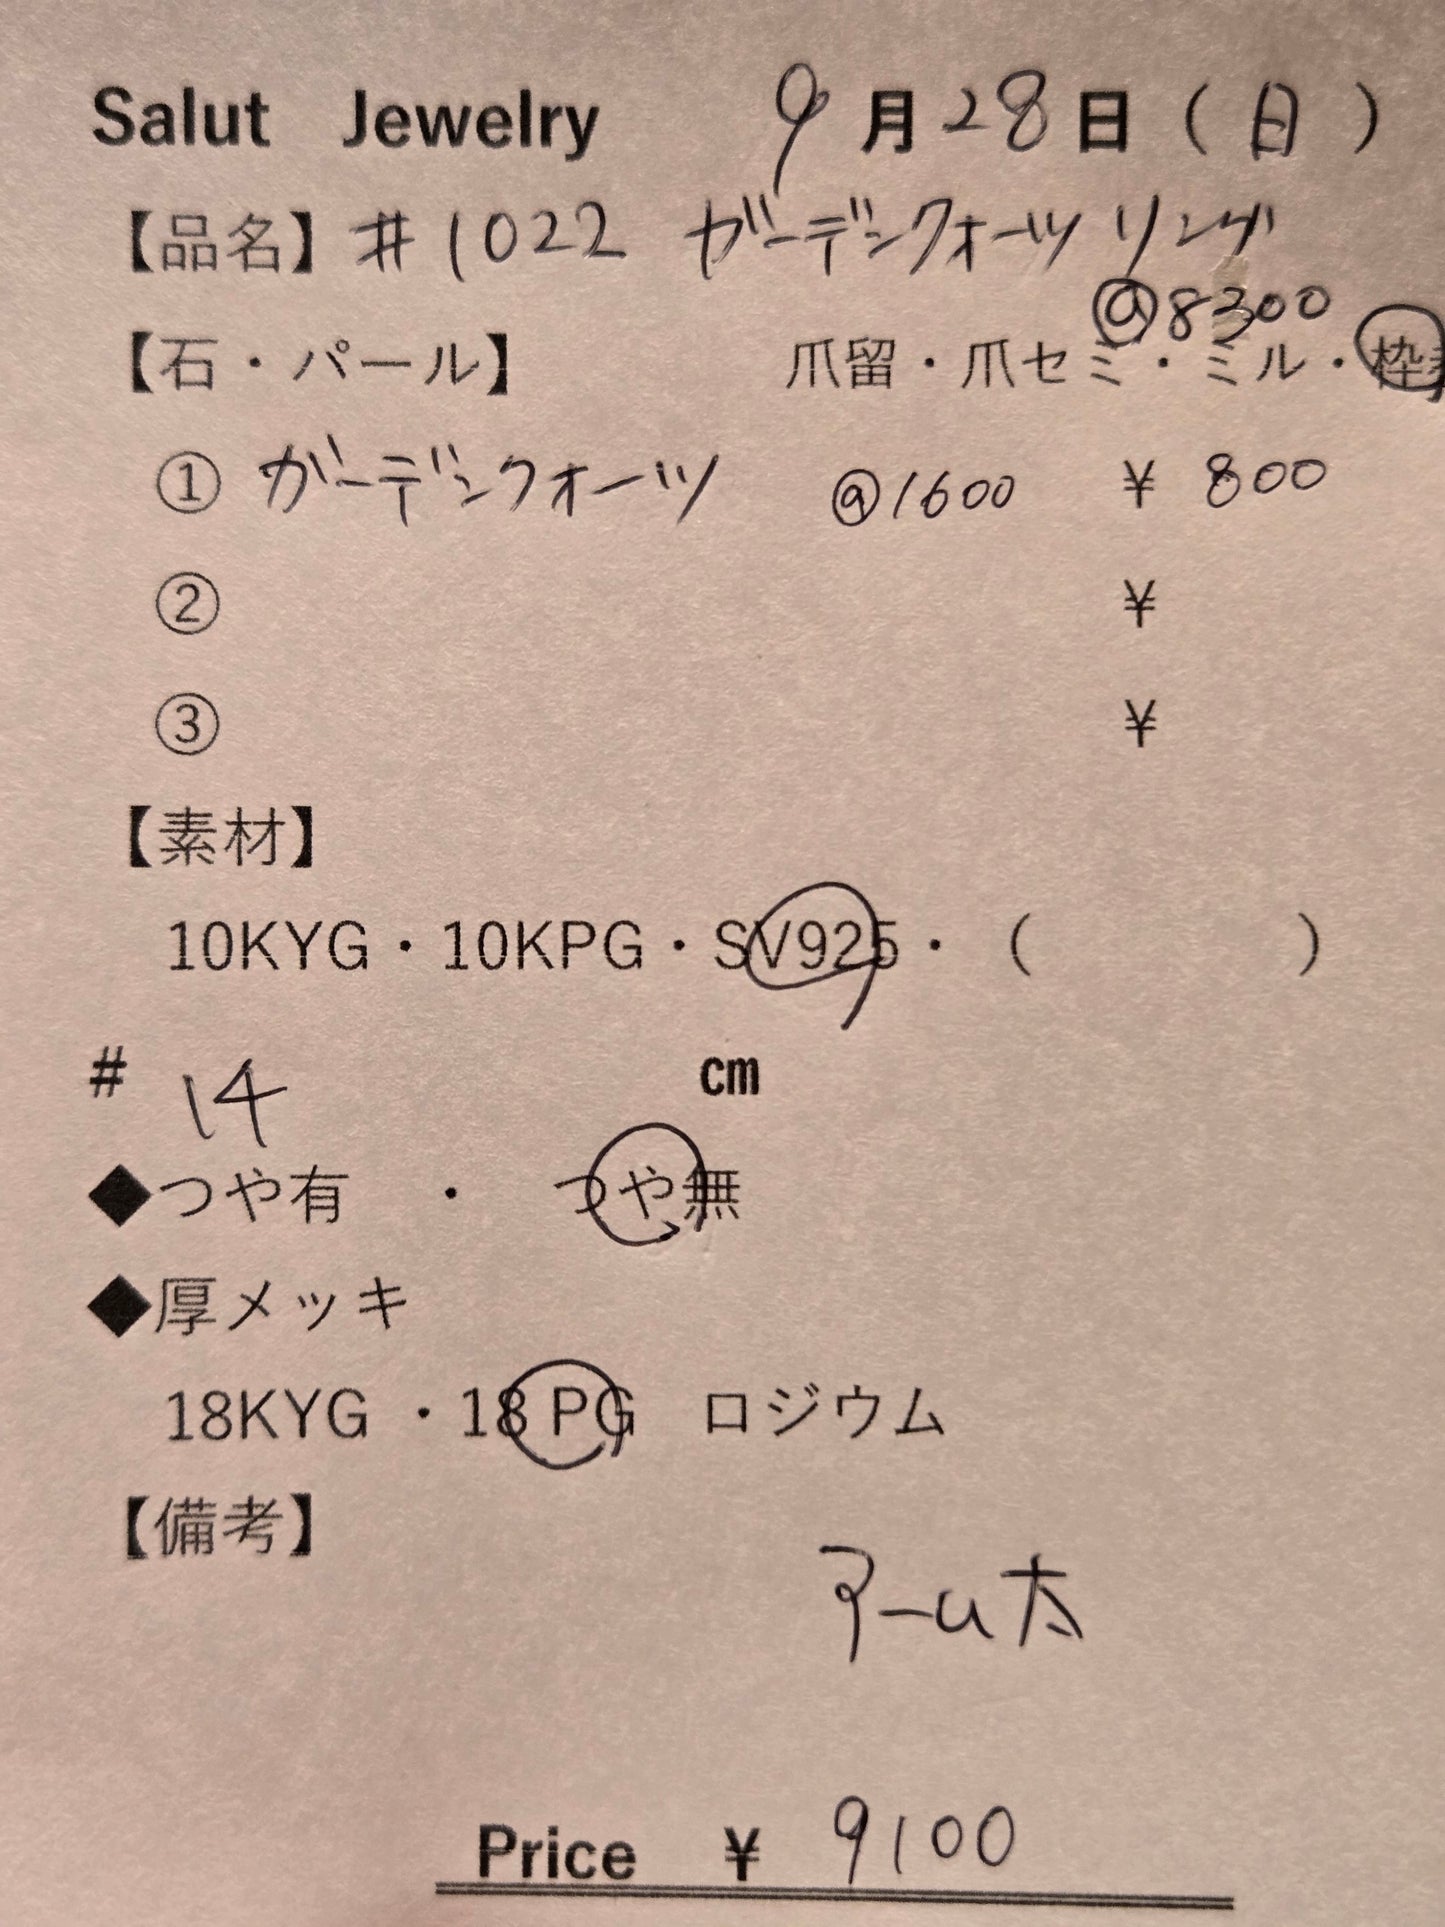 Salut Jewelry 9月28日(日)
【品名】#1022 ガーデンクォーツリング
@8300
【石・パール】 爪留・爪セミ・ミル・枠
① ガーデンクォーツ @1600 ¥ 800
② ¥
③ ¥
【素材】
10KYG・10KPG・SV925・( )
# 14 cm
◆つや有 ・ つや無
◆厚メッキ
18KYG ・18 PG ロジウム
【備考】
アーム太
Price ¥ 9100